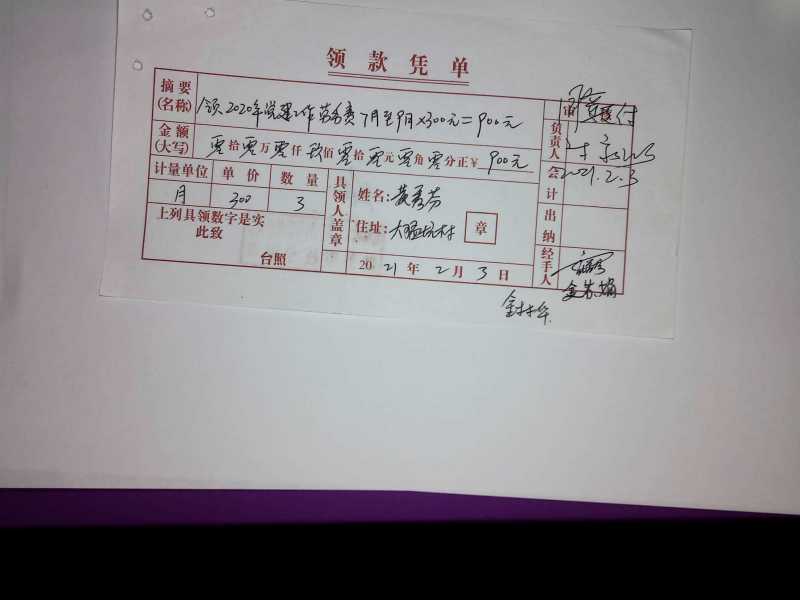 领款凭单
摘要(名称) 领2020年党建工作劳务费7月至9月×300元=900元
金额(大写) 零拾零万零仟玖佰零拾零元零角零分正¥ 900元
计量单位 单价 数量
月 300 3
上列具领数字是实
此致
台照
具领人盖章
姓名:黄秀芬
住址: 章
2021年2月3日
审
负责人
会计 2021.2.3
出纳
经手人